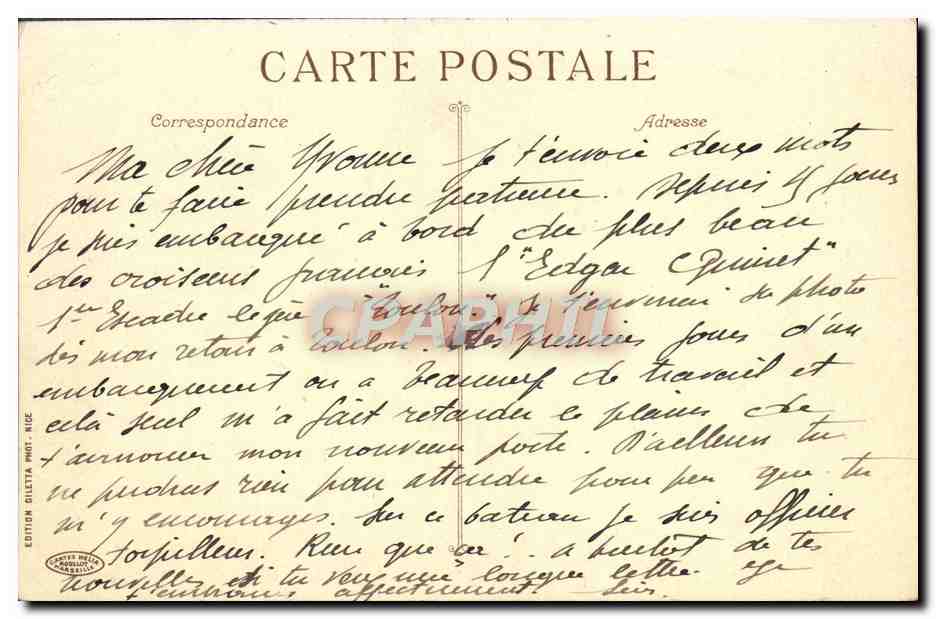 CARTE POSTALE
Correspondance
Adresse
Ma chère Yvonne je t'envoie deux mots
pour te faire prendre patience. Depuis 15 jours
je suis embarqué à bord du plus beau
des croiseurs français l'"Edgar Quinet"
1ère Escadre légère "Toulon". Je t'enverrai sa photo
dès mon retour à Toulon. Les premiers jours d'un
embarquement on a beaucoup de travail et
celà seul m'a fait retarder le plaisir de
t'annoncer mon nouveau poste. D'ailleurs tu
ne perdras rien pour attendre pour peu que tu
m'y encourages. Sur ce bateau je suis officier
torpilleur. Rien que ça! .. a bientot de tes
nouvelles si tu veux une longue lettre.
affectueusement
EDITION GILETTA PHOT. NICE
CARTES HELIA
ROULLOT
MARSEILLE
CPARHTI